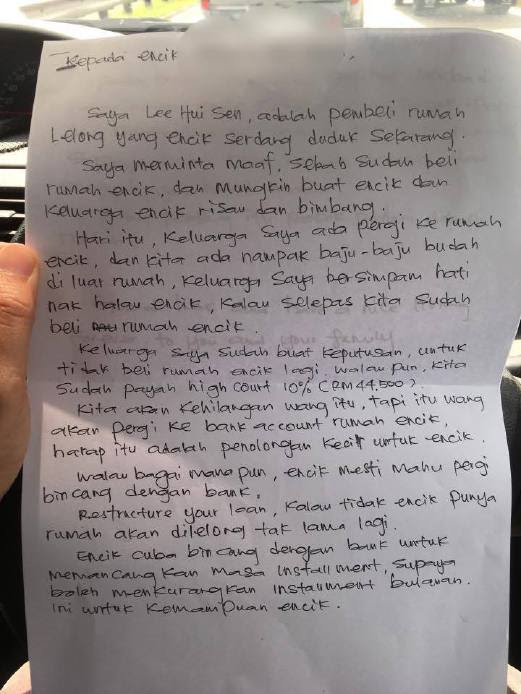 Kepada encik
Saya Lee Hui Sen, adalah pembeli rumah
Lelong yang encik serdang duduk sekarang.
Saya merminta maaf, sebab sudah beli
rumah encik, dan mungkin buat encik dan
keluarga encik risau dan bimbang.
Hari itu, keluarga saya ada pergi ke rumah
encik, dan kita ada nampak baju-baju budah
di luar rumah, keluarga saya bersimpam hati
nak halau encik, kalau selepas kita sudah
beli rumah encik.
Keluarga saya sudah buat keputusan, untuk
tidak beli rumah encik lagi, walau pun, kita
sudah payah high court 10% (RM44,500).
Kita akan kehilangan wang itu, tapi itu wang
akan pergi ke bank account rumah encik,
harap itu adalah penolongan kecil untuk encik.
Walau bagai mana pun, encik mesti mahu pergi
bincang dengan bank,
Restructure your loan, kalau tidak encik punya
rumah akan dilelong tak lama lagi.
Encik cuba bincang dengan bank untuk
memancangkan masa installment, supaya
boleh menkurangkan installment bulanan.
Ini untuk kemampuan encik.